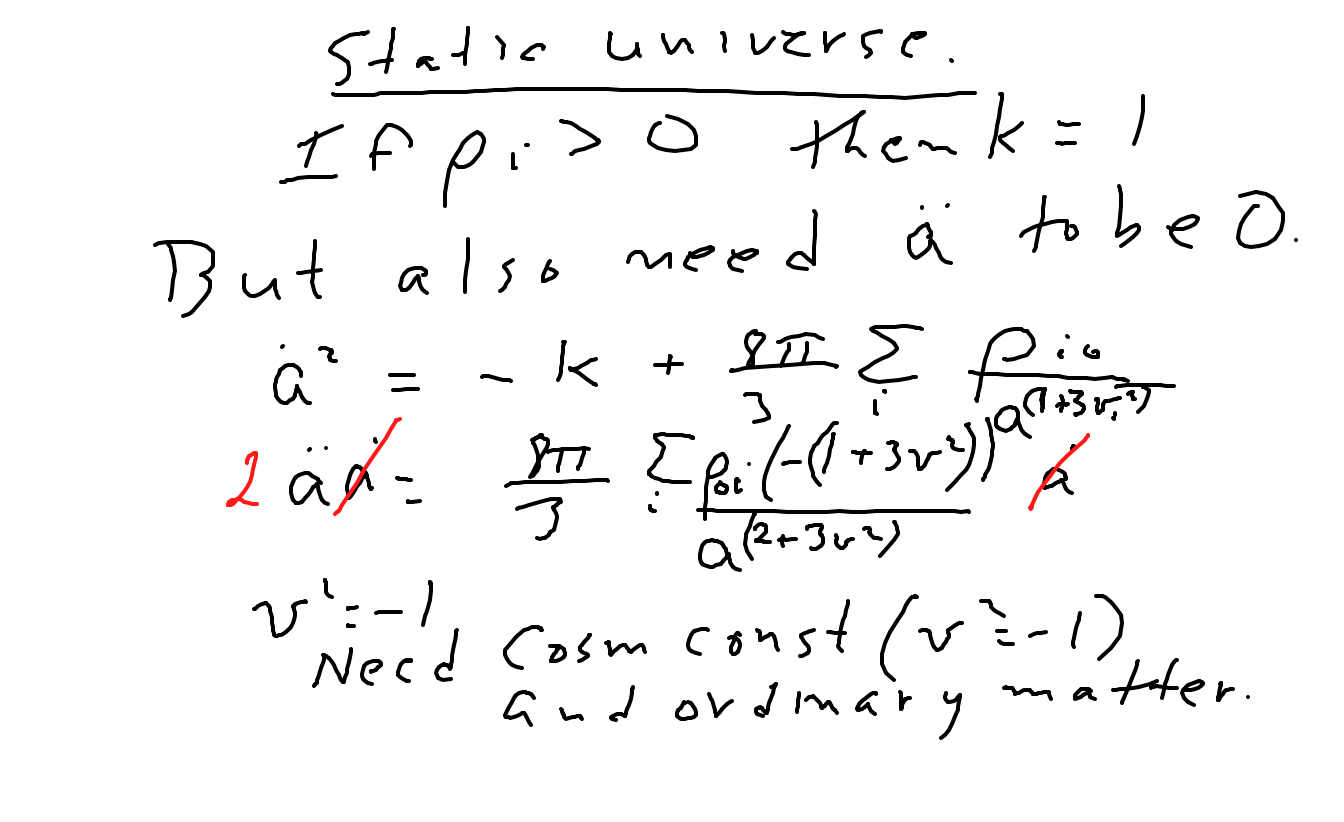 Static universe.
If ρᵢ > 0 then k = 1
But also need ä to be 0.
ȧ² = - k + 8π/3 Σᵢ ρᵢ₀/a^(1+3vᵢ²)
2 ä ȧ = 8π/3 Σᵢ ρ₀ᵢ(-(1+3v²))/a^(2+3v²) ȧ
v² = -1
Need Cosm const (v² = -1)
and ordinary matter.